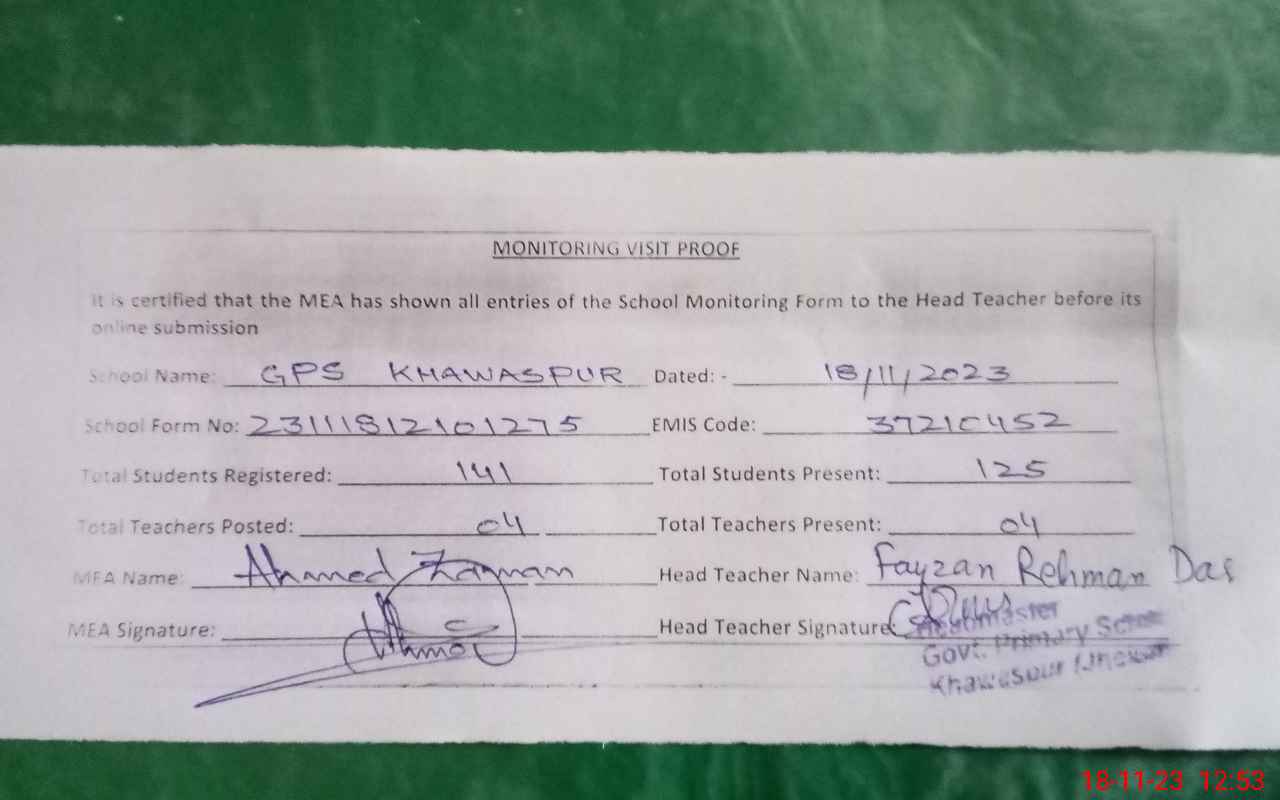 MONITORING VISIT PROOF
It is certified that the MEA has shown all entries of the School Monitoring Form to the Head Teacher before its
online submission
School Name: GPS KHAWASPUR Dated: - 18/11/2023
School Form No: 23111812101275 EMIS Code: 37210452
Total Students Registered: 141 Total Students Present: 125
Total Teachers Posted: 04 Total Teachers Present: 04
MEA Name: Ahmed Zaman Head Teacher Name: Fayzan Rehman Das
MEA Signature: Head Teacher Signature
Headmaster
Govt. Primary
Khawaspur
18-11-23 12:53